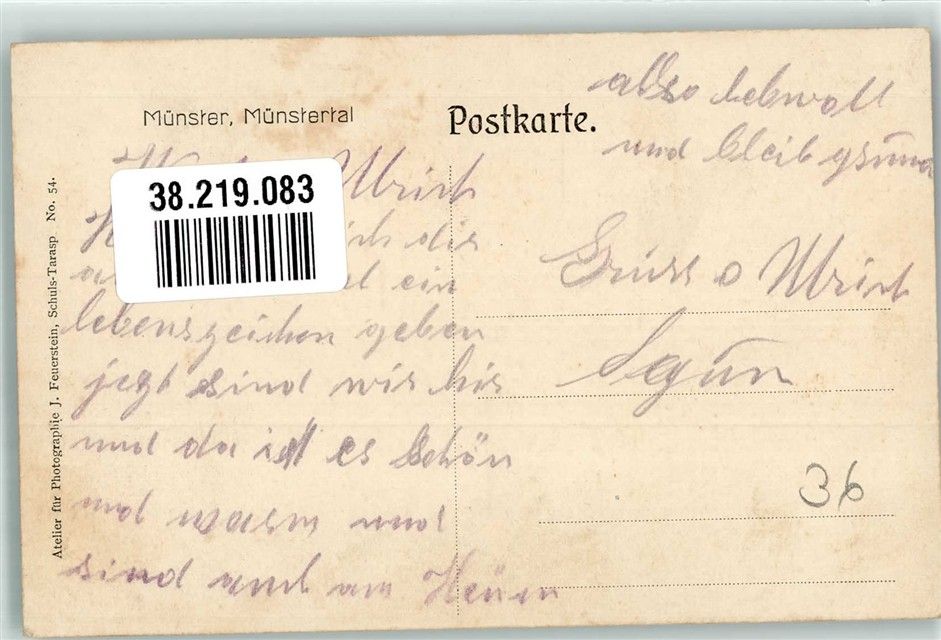 Münster, Münstertal
Postkarte.
Atelier für Photographie J. Feuerstein, Schuls-Tarasp No. 54.
38.219.083
Ulrich
ich dir
ein
lebenszeichen geben
jezt sind wir hir
und da ist es schön
und warm und
sind auch am Heuen
also lebwoll
und bleib gsund
Gruss o Ulrich
36